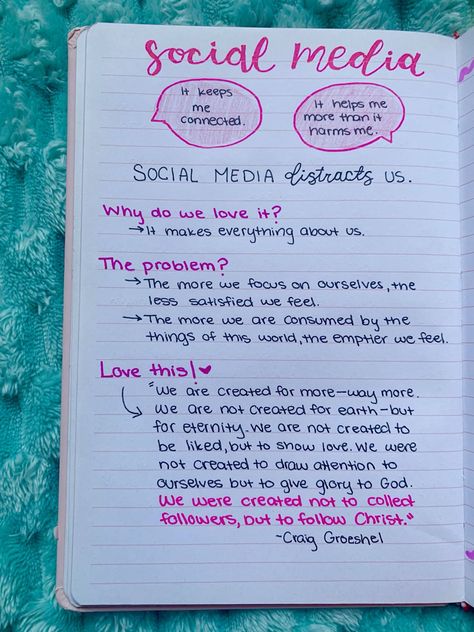 social media
It keeps
me
connected.
It helps me
more than it
harms me.
SOCIAL MEDIA distracts US.
Why do we love it?
→It makes everything about us.
The problem?
→The more we focus on ourselves, the
less satisfied we feel.
→The more we are consumed by the
things of this world, the emptier we feel.
Love this! ♥
"We are created for more—way more.
We are not created for earth—but
for eternity. We are not created to
be liked, but to show love. We were
not created to draw attention to
ourselves but to give glory to God.
We were created not to collect
followers, but to follow Christ."
~Craig Groeshel